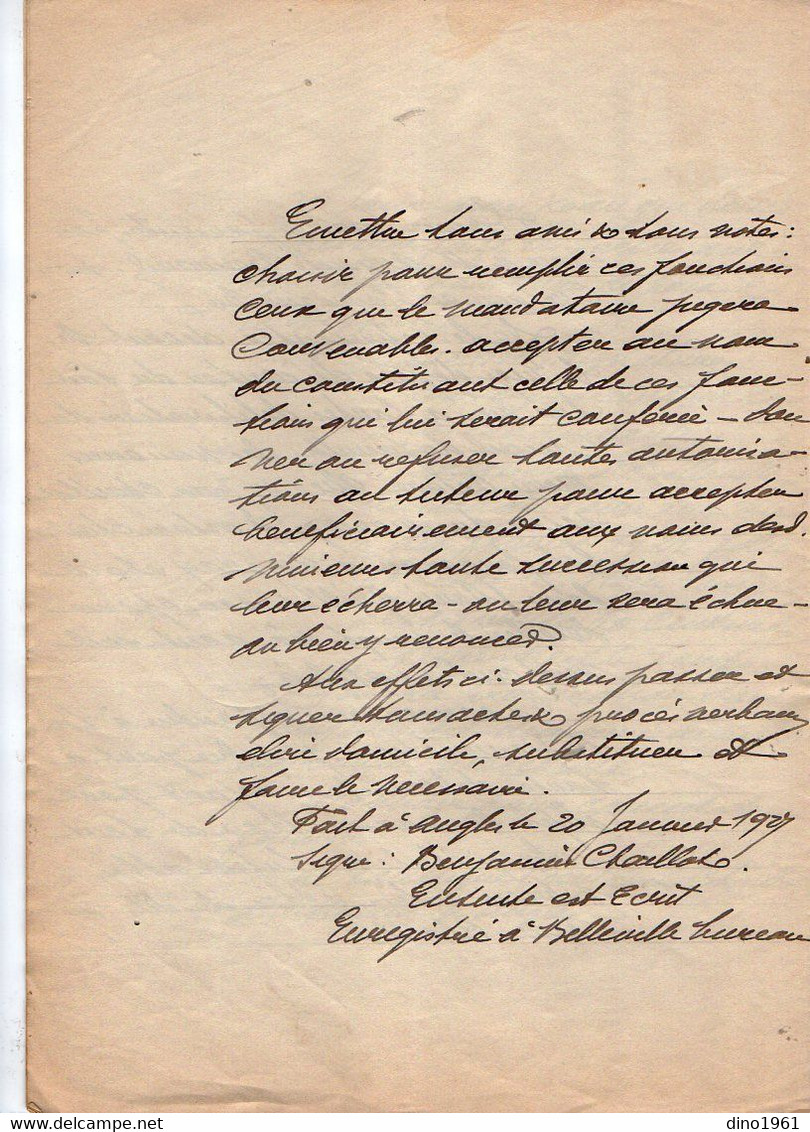 Emettre tous avis & tous votes :
choisir pour remplir ces fonctions
ceux que le mandataire jugera
Convenables. accepter au nom
du constituant celle de ces fonc-
tions qui lui serait conferée - don
ner ou refuser toutes autorisa-
tions au tuteur pour accepter
beneficiairement aux noms desd.
mineurs toute succession qui
leur écherra - ou leur sera échue -
ou bien y renoncer.
Aux effets ci-dessus passer et
signer tous actes & procès verbaux
elire domicile, substituer et
faire le necessaire.
Fait à Angles le 20 Janvier 1927
Signé : Benjamin Chaillot.
Ensuite est Ecrit
Enregistré à Belleville bureau
dino1961